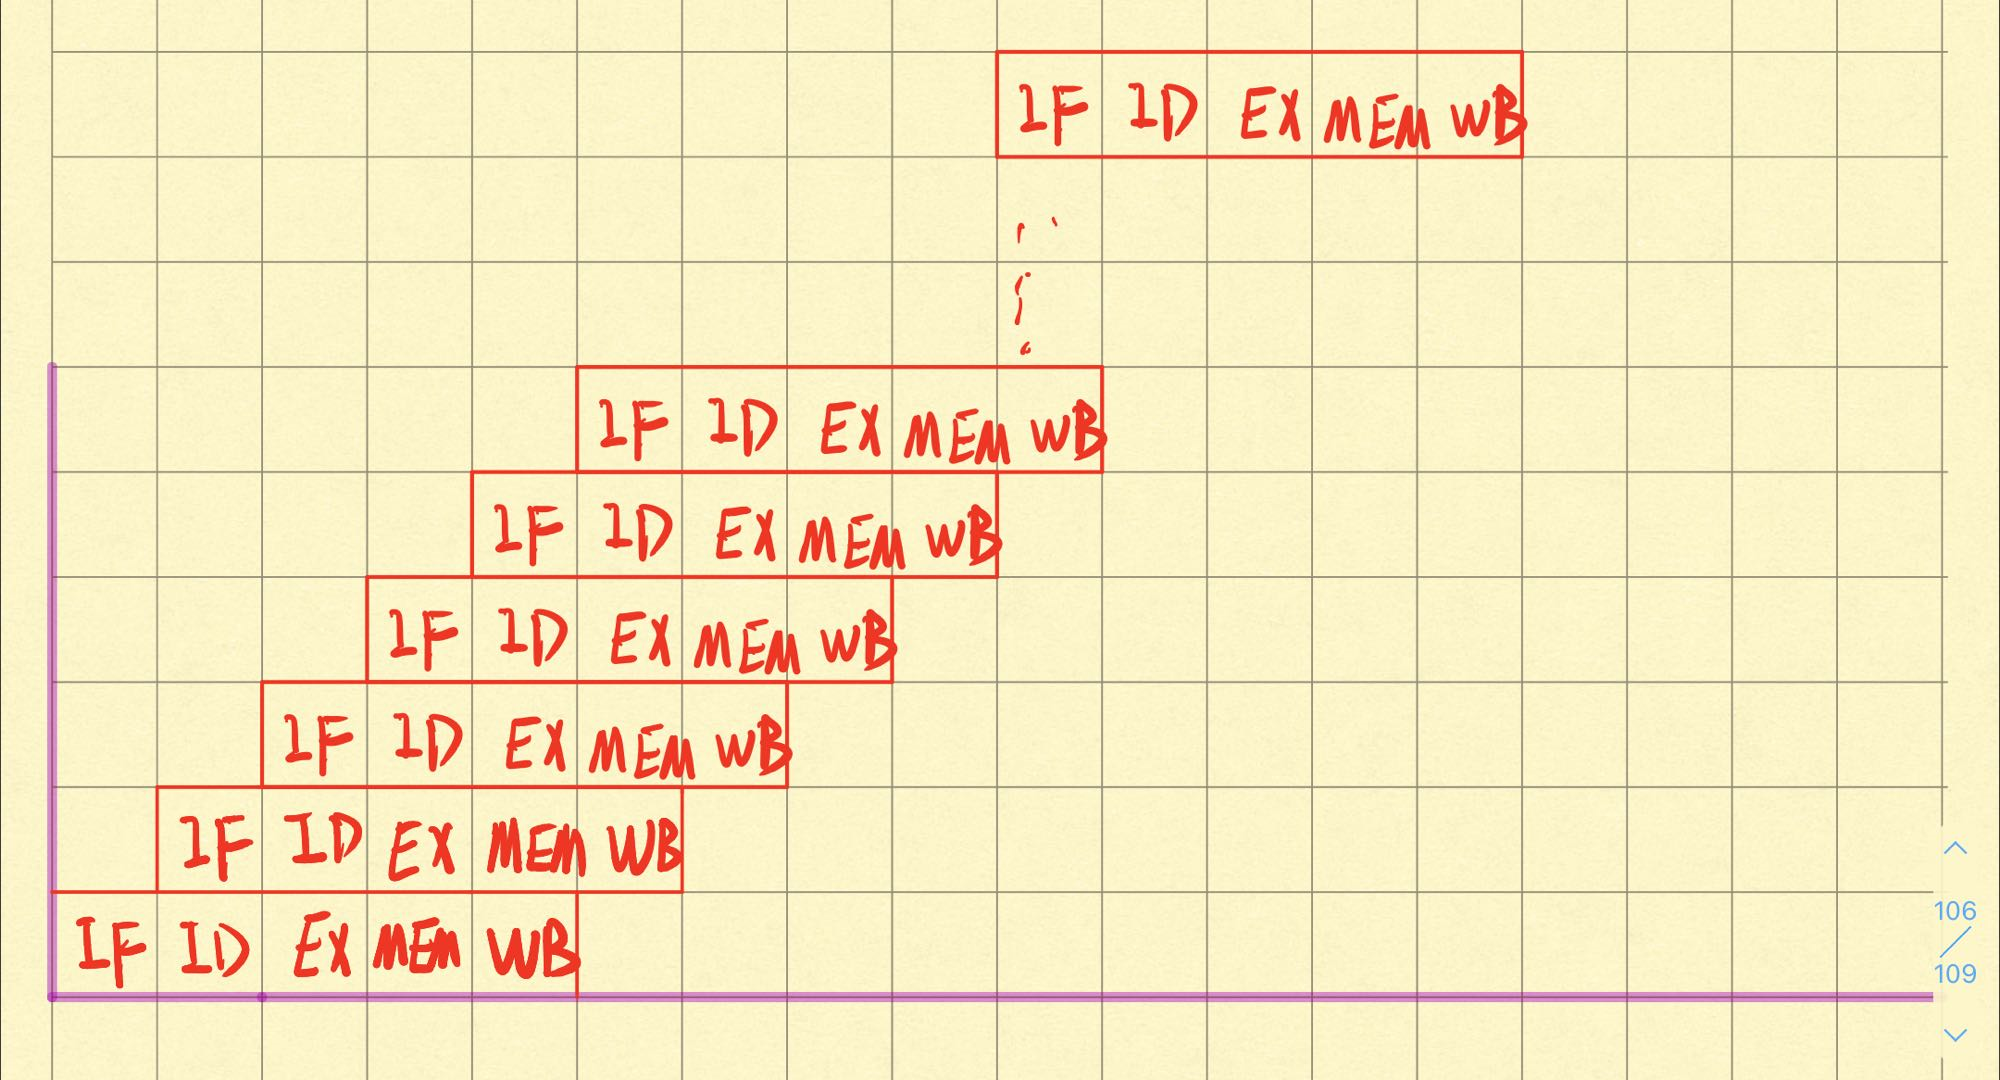 IF ID EX MEM WB
IF ID EX MEM WB
IF ID EX MEM WB
IF ID EX MEM WB
IF ID EX MEM WB
IF ID EX MEM WB
IF ID EX MEM WB
106
/
109